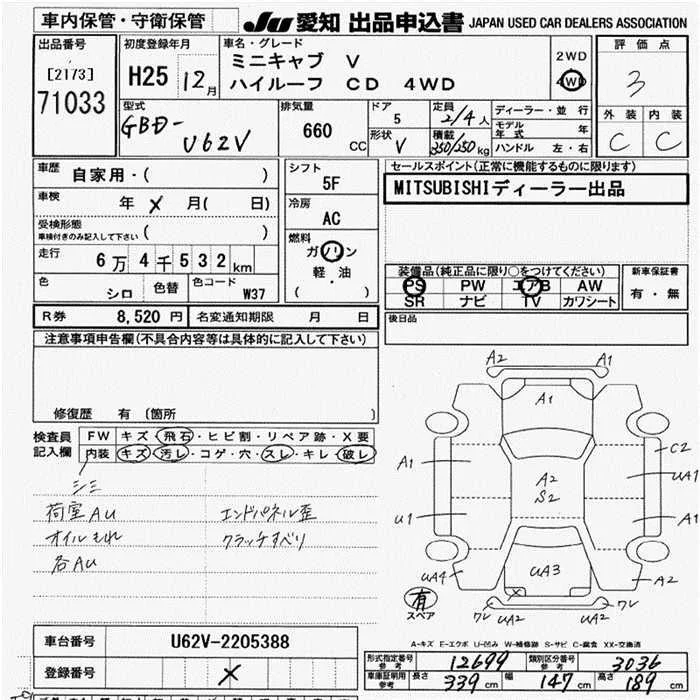 車内保管・守衛保管
JU 愛知 出品申込書 JAPAN USED CAR DEALERS ASSOCIATION
出品番号
[2173]
71033
初度登録年月
H25 12月
車名・グレード
ミニキャブ V
ハイルーフ CD 4WD
2WD
4WD
評価点
3
外装 内装
C C
型式
GBD-
U62V
排気量
660 CC
ドア
5
形状
V
定員
2/4人
積載
350/250kg
ディーラー・並行
モデル年式 年
ハンドル 左・右
車歴 自家用・( )
車検 年 × 月( 日)
受検形態
車検付きのみ記入して下さい ( )
走行
6万4千532km
色 シロ 色替 色コード W37
シフト
5F
冷房
AC
燃料
ガソリン
軽・油
( )
セールスポイント(正常に機能するものに限ります)
MITSUBISHIディーラー出品
装備品(純正品に限り○をつけてください)
PS PW エアB AW
SR ナビ TV カワシート
新車保証書
有・無
R券 8,520円 名変通知期限 月 日
後日品
注意事項申告欄(不具合内容等は具体的に記入して下さい)
修復歴 有(箇所 )
検査員記入欄
FW キズ・飛石・ヒビ割・リペア跡・X要
内装 キズ・汚レ・コゲ・穴・スレ・キレ・破レ
シミ
荷室AU エンドパネル歪
オイルもれ クラッチすべり
各AU
A2 A1
A1
C2
A1 UA1
A2
S2
U1 A1
UA4 UA3 A2
×
有
スペア
ワレ UA2 UA2 ワレ
A-キズ E-エクボ U-凹み W-補修跡 S-サビ C-腐食 XX-交換済
車台番号 U62V-2205388
登録番号 ×
形式指定番号参考 12699 類別区分番号参考 3036
車庫証明用参考 長さ 339cm 幅 147cm 高さ 189cm